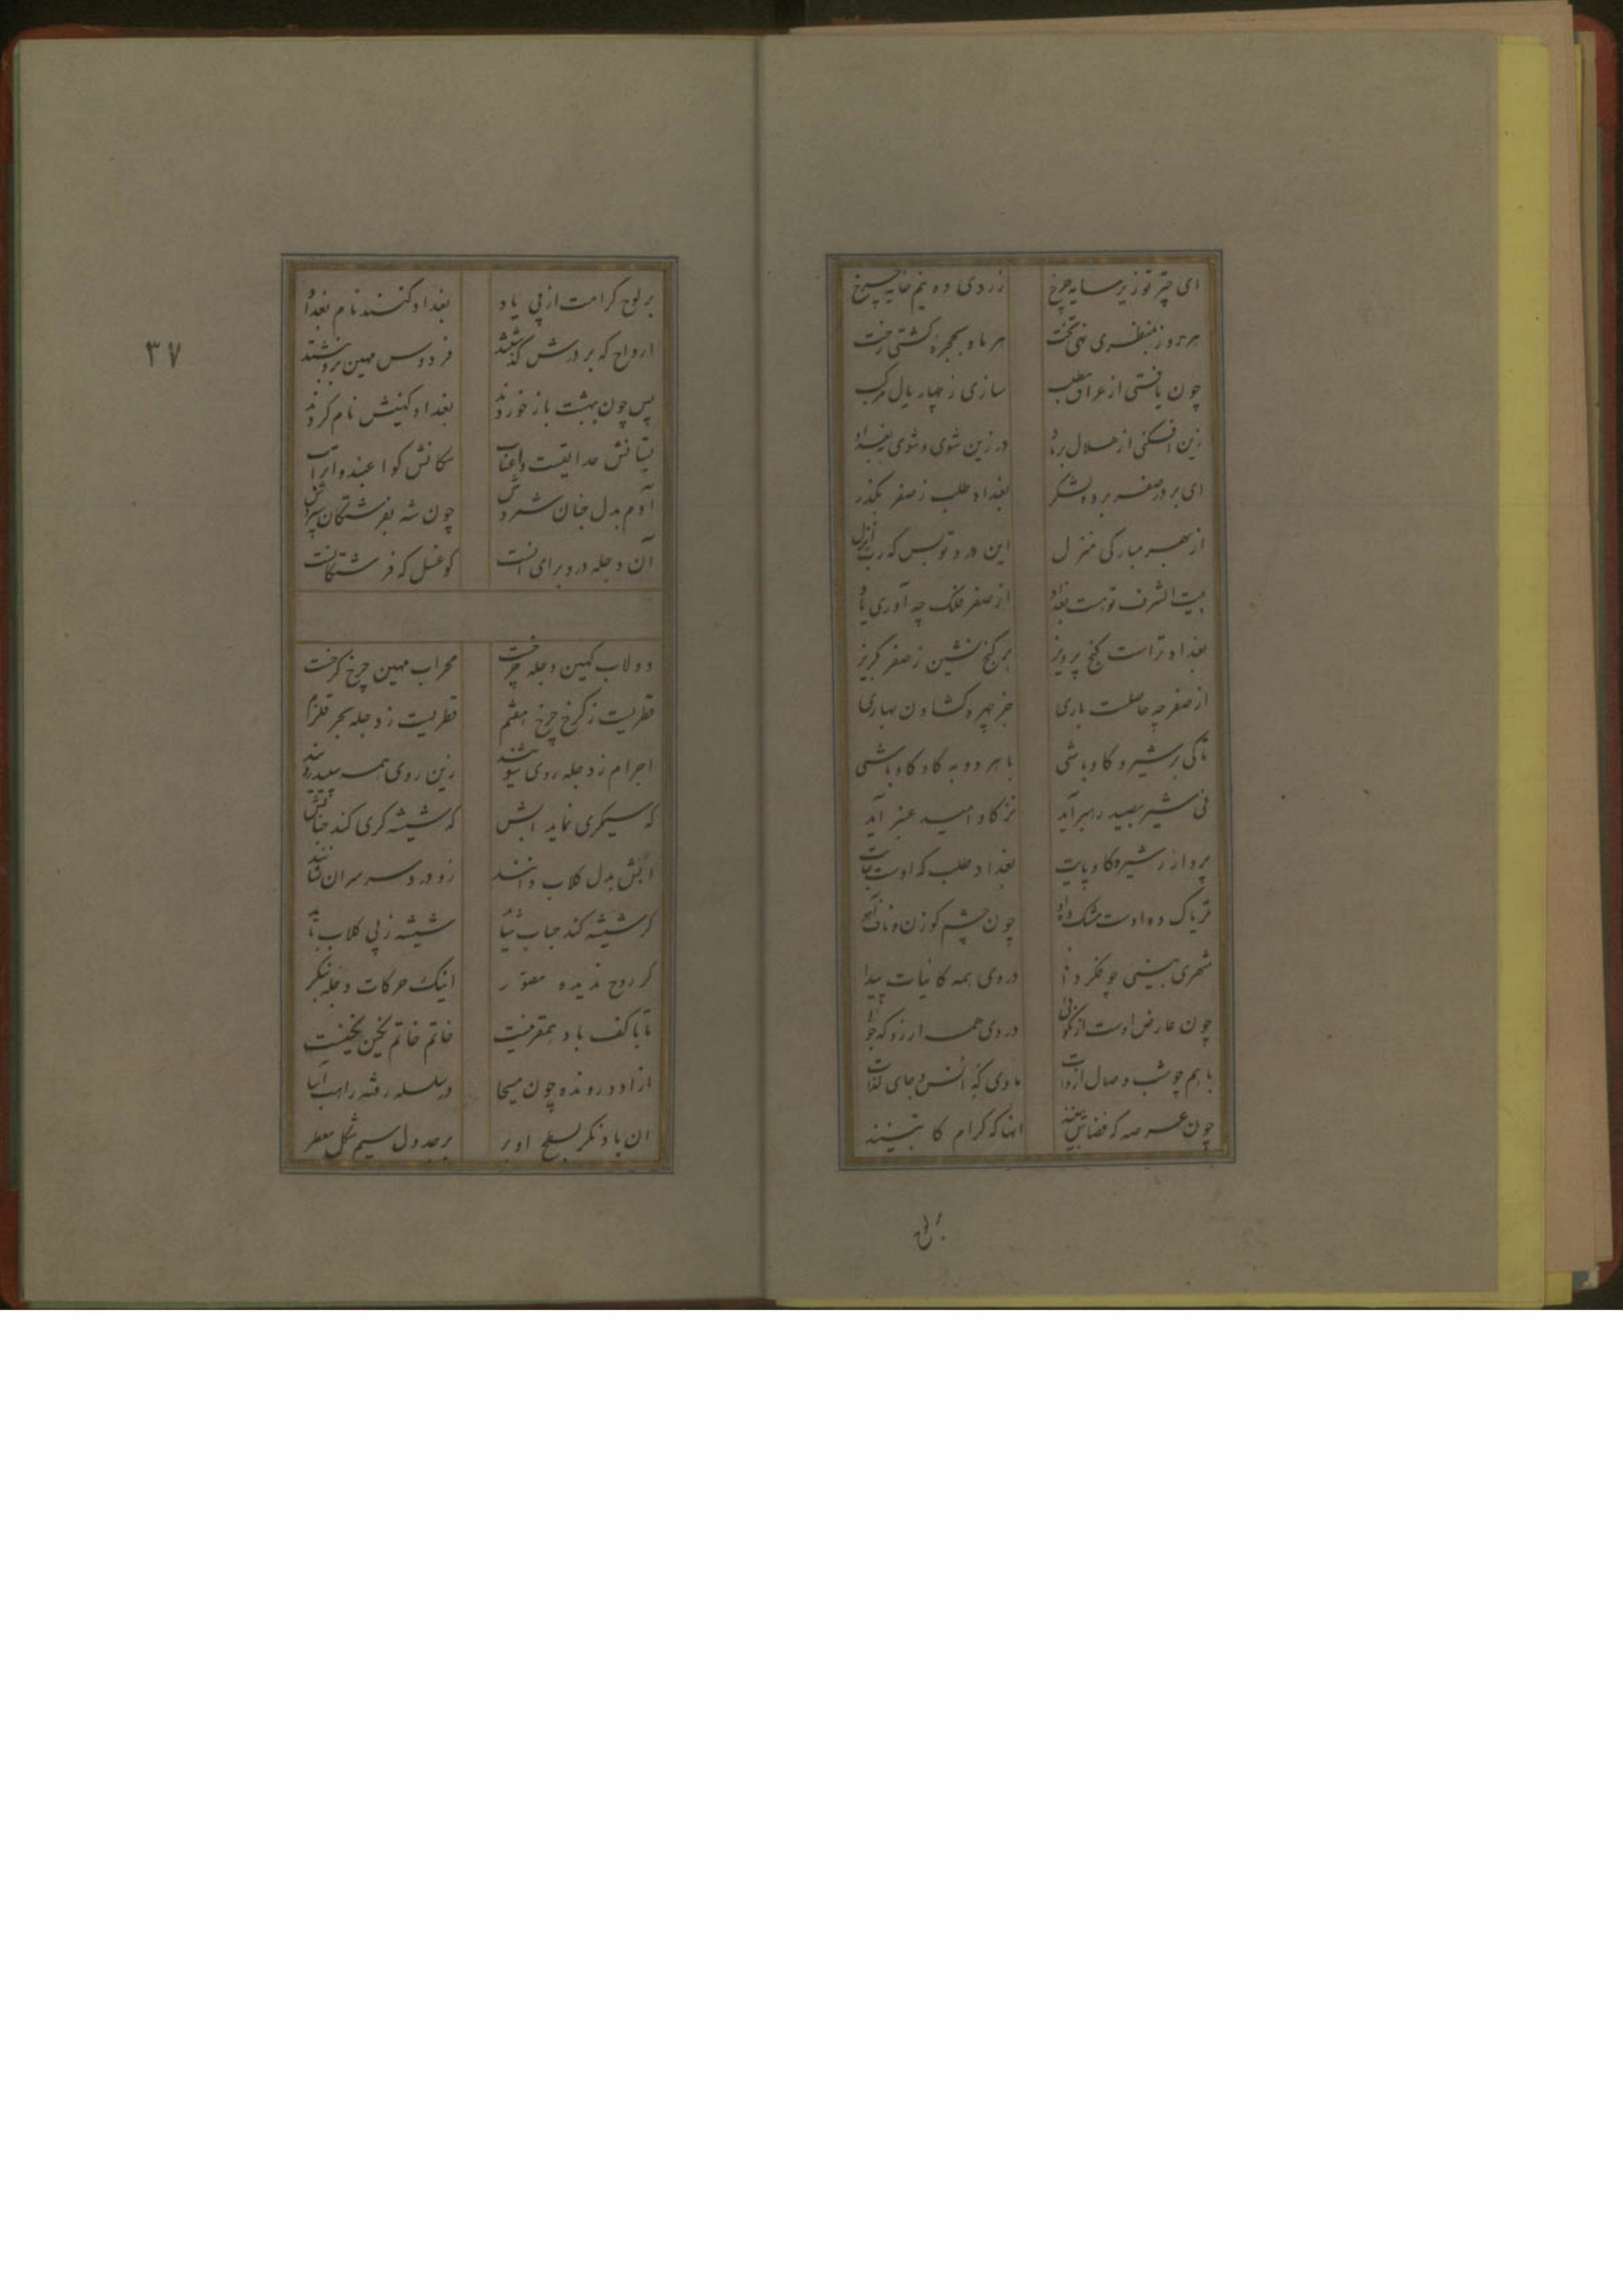 ای چتر تو زیر سایه چرخ زردی ده نیم خایه چرخ
هر روز بمنظری نهی تخت هر ماه بحجره کشتی رخت
چون یافتی از عراق مطلب سازی ز چهار یال مرکب
زین افکنی از هلال بر باد در زین شوی و شوی به بغداد
ای بر در صفر برده لشکر بغداد طلب ز صفر بگذر
از بهر مبارکی منزل این ورد تو بس که رب انزل
بیت الشرف تو هست بغداد از صفر فلک چه آوری یاد
بغداد تراست گنج پرویز بر گنج نشین ز صفر بگریز
از صفر چه حاصلست باری جز چهره گشادن بهاری
تا کی بر شیر و گاو باشی با هر دو به کاو کاو باشی
نی شیر بصید رهبر آید نز گاو امید عنبر آید
پرداز ز شیر و گاو پایت بغداد طلب که اوست جایت
تریاک ده اوست مشک داد او چون چشم گوزن و ناف آهو
شهری بینی چو فکر دانا در وی همه کائنات پیدا
چون عارض اوست از نکوئی در وی همه آرزو که جوئی
با هم چو شب وصال ازوات ماوی که انس و جای لذات
چون عرصه که فضاش بینند آنها که کرام کاتبینند
بر لوح
۳۷
بر لوح کرامت از پی یاد بغداد کنند نام بغداد
ارواح که بر درش گذشتند فردوس مهین برو نبشتند
پس چون بهشت باز خوردند بغداد کهینش نام کردند
بستانش حدایقست و اعناب سکانش کواعبند و اتراب
آدم بدل جنان شمردش چون شه بفرشتگان سپردش
آن دجله درو برای آنست کو غسل که فرشتگانست
دولاب کهین دجله چرخست محراب مهین چرخ کرخست
قطریست ز کرخ چرخ هفتم قطریست ز دجله بحر قلزم
اجرام ز دجله روی شویند زین روی همه سپید رویند
که سیمگری نماید آبش که شیشه گری کند حبابش
آبش بدل گلاب دانند زو درد سر سران نشانند
گر شیشه کند حباب شاید شیشه ز پی گلاب باید
گر روح ندیده مصور اینک حرکات دجله بنگر
تا با کف باد همقرینست خاتم خاتم نگین نگینست
آزاد و رونده چون مسیحا در سلسله رفته راهب آسا
آن باد نگر بسطح او بر بر جدول سیم شکل مسطر